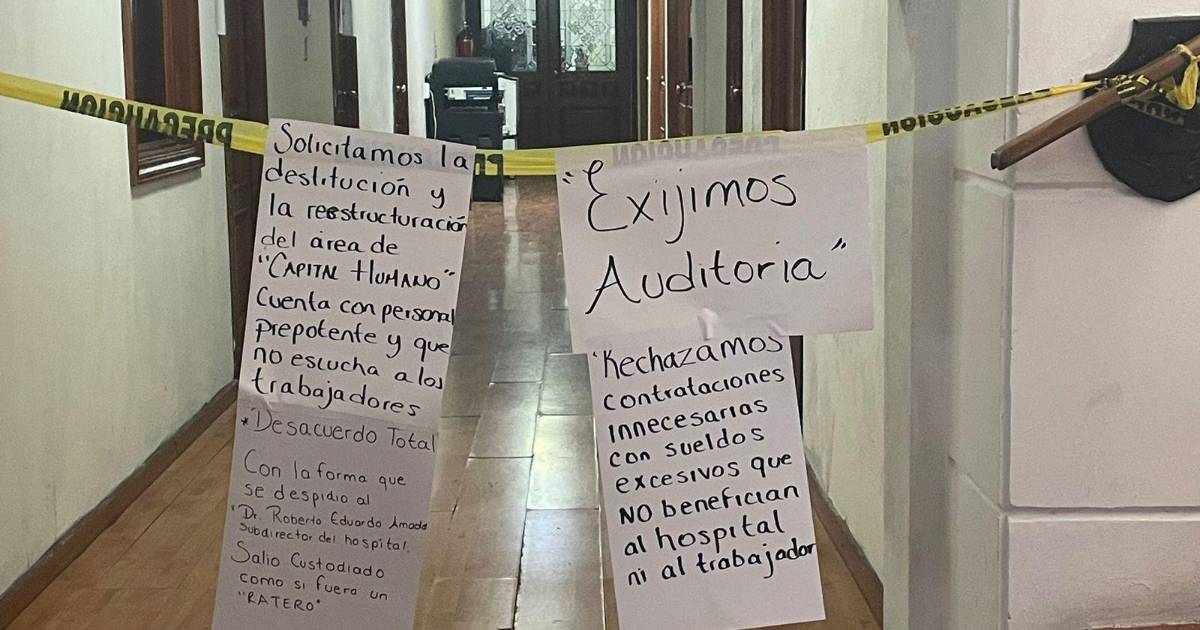 PRECAUCION
Solicitamos la
destitución y
la reestructuración
del área de
"CAPITAL HUMANO"
Cuenta con personal
prepotente y que
no escucha a los
trabajadores
*Desacuerdo Total
Con la forma que
se despidio al
"Dr. Roberto Eduardo Amador
Subdirector del hospital.
Salio Custodiado
como si fuera un
"RATERO"
PRECAUCION
"Exijimos
Auditoria"
"Rechazamos
contrataciones
innecesarias
con sueldos
excesivos que
NO benefician
al hospital
ni al trabajador
PRECAUCION